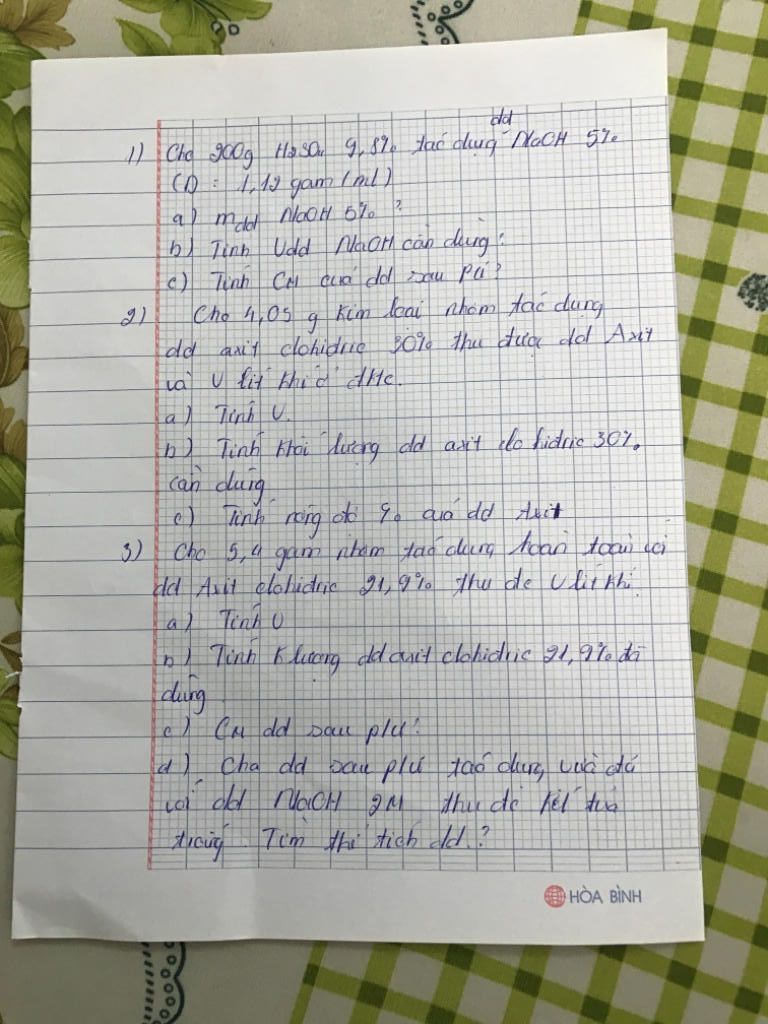 dd
1) Cho 200g H2SO4 9,8% tác dụng NaOH 5%
(D = 1,12 gam/ml)
a) mdd NaOH 5%?
b) Tính Vdd NaOH cần dùng?
c) Tính CM của dd sau pứ?
2) Cho 4,05 g kim loại nhôm tác dụng
dd axit clohidric 30% thu được dd Axit
và V lít khí ở đktc.
a) Tính V.
b) Tính khối lượng dd axit clo hidric 30%
cần dùng
c) Tính nồng độ % của dd Axit
3) Cho 5,4 gam nhôm tác dụng hoàn toàn với
dd Axit clohidric 21,9% thu đc V lít khí
a) Tính V
b) Tính K lượng dd axit clohidric 21,9% đã
dùng
c) CM dd sau pứ?
d) Cho dd sau pứ tác dụng vừa đủ
với dd NaOH 2M thu đc kết tủa
trắng. Tìm thể tích dd?
HÒA BÌNH